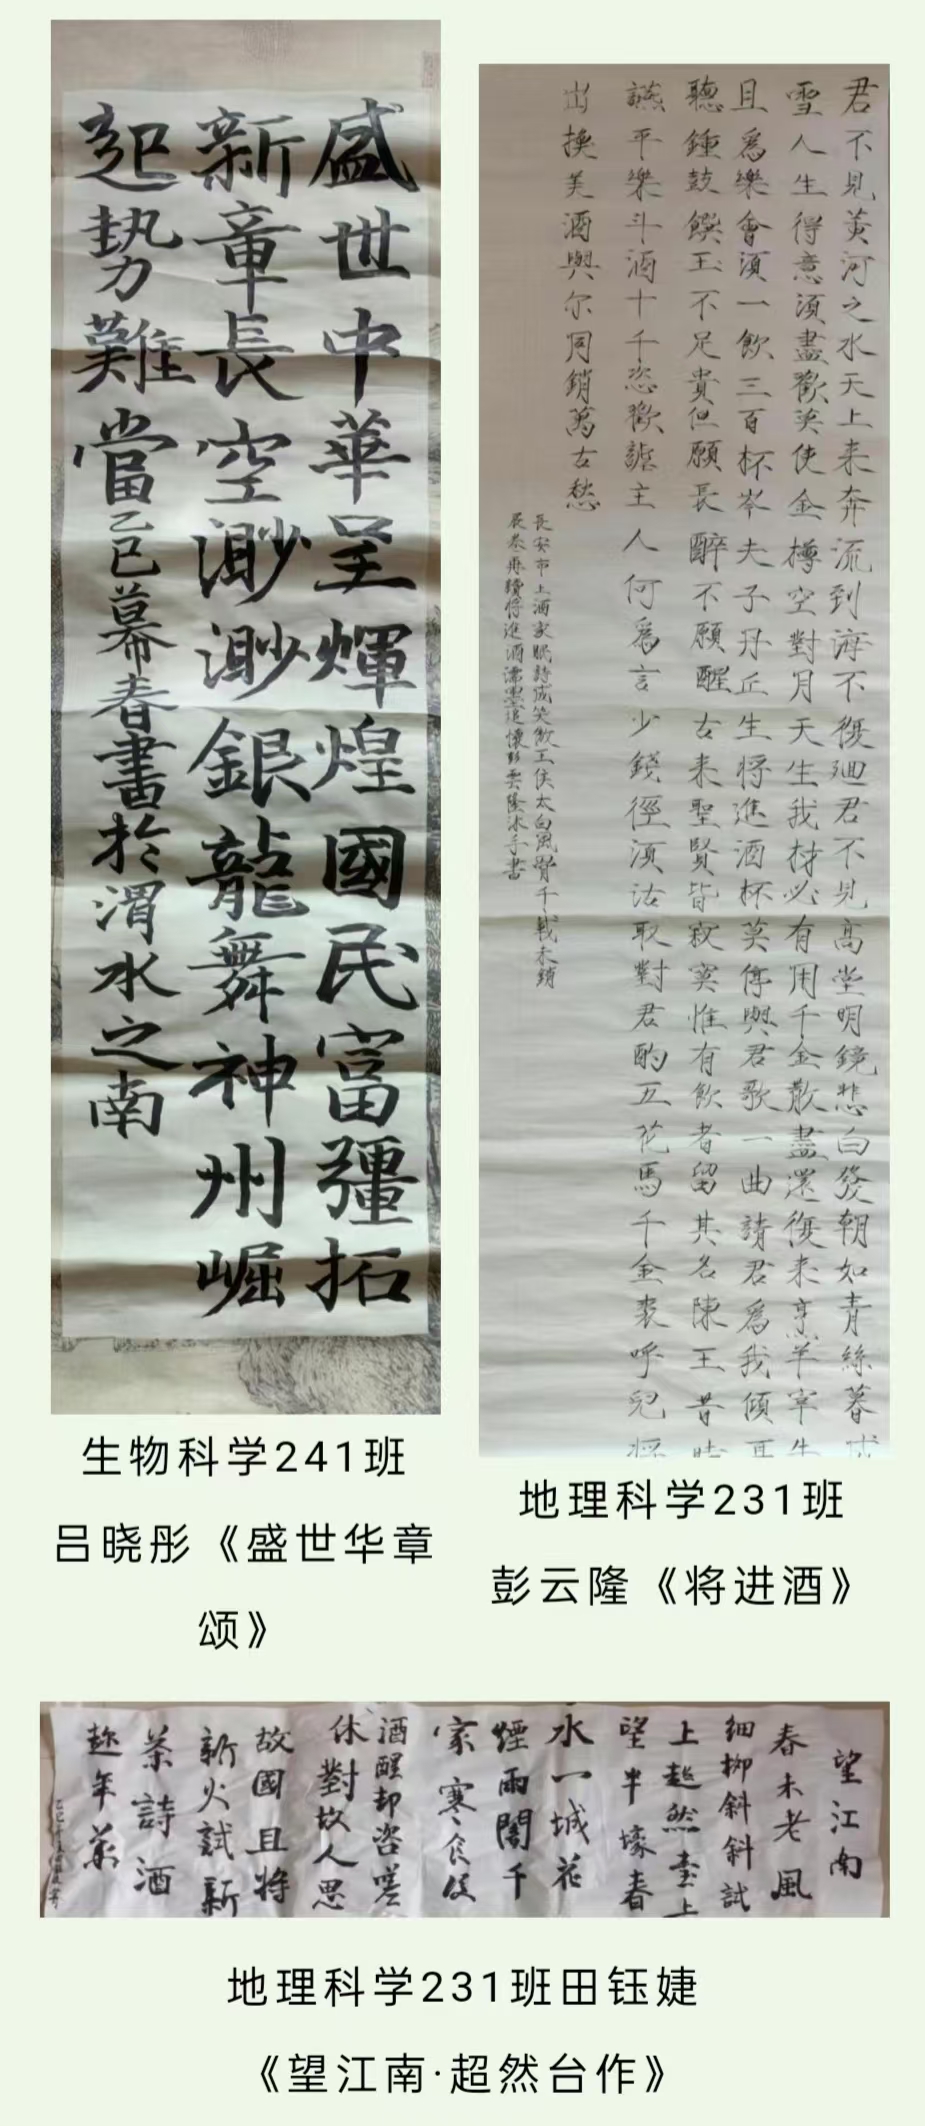 盛世中華呈輝煌國民富彊拓
新章長空渺渺銀龍舞神州崛
起勢難當乙巳暮春書於渭水之南
君不見黃河之水天上来奔流到海不復廻君不見高堂明鏡悲白發朝如青絲暮成
雪人生得意須盡歡莫使金樽空對月天生我材必有用千金散盡還復来烹羊宰牛
且爲樂會須一飲三百杯岑夫子丹丘生将進酒杯莫停與君歌一曲請君爲我傾耳
聽鐘鼓饌玉不足貴但願長醉不願醒古来聖賢皆寂寞惟有飲者留其名陳王昔時
讌平樂斗酒十千恣歡謔主人何爲言少錢徑須沽取對君酌五花馬千金裘呼兒将
出換美酒與尔同銷萬古愁
長安市上酒家眠詩成笑傲王侯太白風骨千載未銷
展卷再讀将進酒濡墨追懷彭雲隆沐手書
生物科学241班
吕晓彤《盛世华章
颂》
地理科学231班
彭云隆《将进酒》
望江南
春未老風
細柳斜斜試
上超然臺上
望半壕春
水一城花
煙雨闇千
家寒食後
酒醒却咨嗟
休對故人思
故國且将
新火試新
茶詩酒
趂年華
地理科学231班田钰婕
《望江南·超然台作》